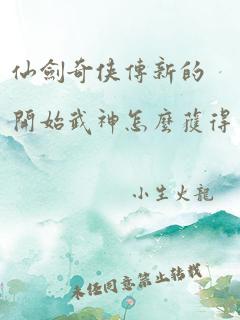 仙劍奇俠傳新的
開始武神怎麼獲得
小生火龍
未經同意禁止轉載